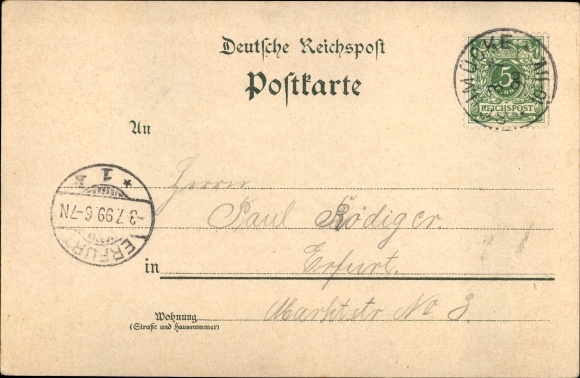 Deutsche Reichspost
Postkarte
5
REICHSPOST
An
Herrn
Paul Rödiger.
in Erfurt.
Marktstr No 8.
Wohnung
(Straße und Hausnummer)
* 1 k
-3.7.99.6-7N
ERFURT